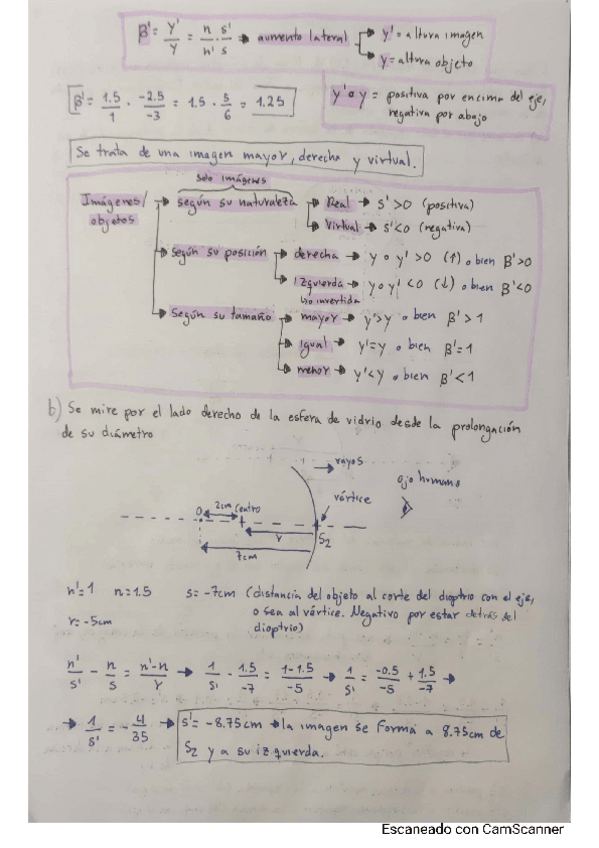 β' = y'/y = n/n' · s'/s → aumento lateral → y' = altura imagen
→ y = altura objeto
β' = 1.5/1 · -2.5/-3 = 1.5 · 5/6 = 1.25
y' o y = positiva por encima del eje,
negativa por abajo
Se trata de una imagen mayor, derecha y virtual.
solo imágenes
Imágenes/ → según su naturaleza → Real → s'>0 (positiva)
objetos
→ Virtual → s'<0 (negativa)
→ según su posición → derecha → y o y' >0 (↑) o bien β'>0
→ Izquierda y o y' <0 (↓) o bien β'<0
o invertida
→ Según su tamaño → mayor → y'>y o bien β'>1
→ Igual → y'=y o bien β'=1
→ menor → y'<y o bien β'<1
b) Se mire por el lado derecho de la esfera de vidrio desde la prolongación
de su diámetro
→ rayos
ojo humano
vértice
O 2cm centro
r S₂
7cm
n'=1 n=1.5 s=-7cm (distancia del objeto al corte del dioptrio con el eje,
o sea al vértice. Negativo por estar detrás del
r=-5cm
dioptrio)
n'/s' - n/s = n'-n/r → 1/s' - 1.5/-7 = 1-1.5/-5 → 1/s' = -0.5/-5 + 1.5/-7 →
→ 1/s' = -4/35 → s' = -8.75cm → la imagen se forma a 8.75cm de
S₂ y a su izquierda.
Escaneado con CamScanner